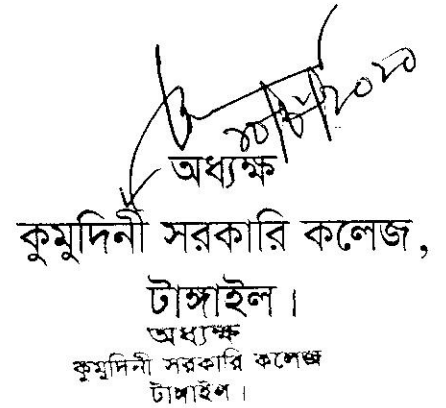 অধ্যক্ষ
কুমুদিনী সরকারি কলেজ,
টাঙ্গাইল।
অধ্যক্ষ
কুমুদিনী সরকারি কলেজ
টাঙ্গাইল।